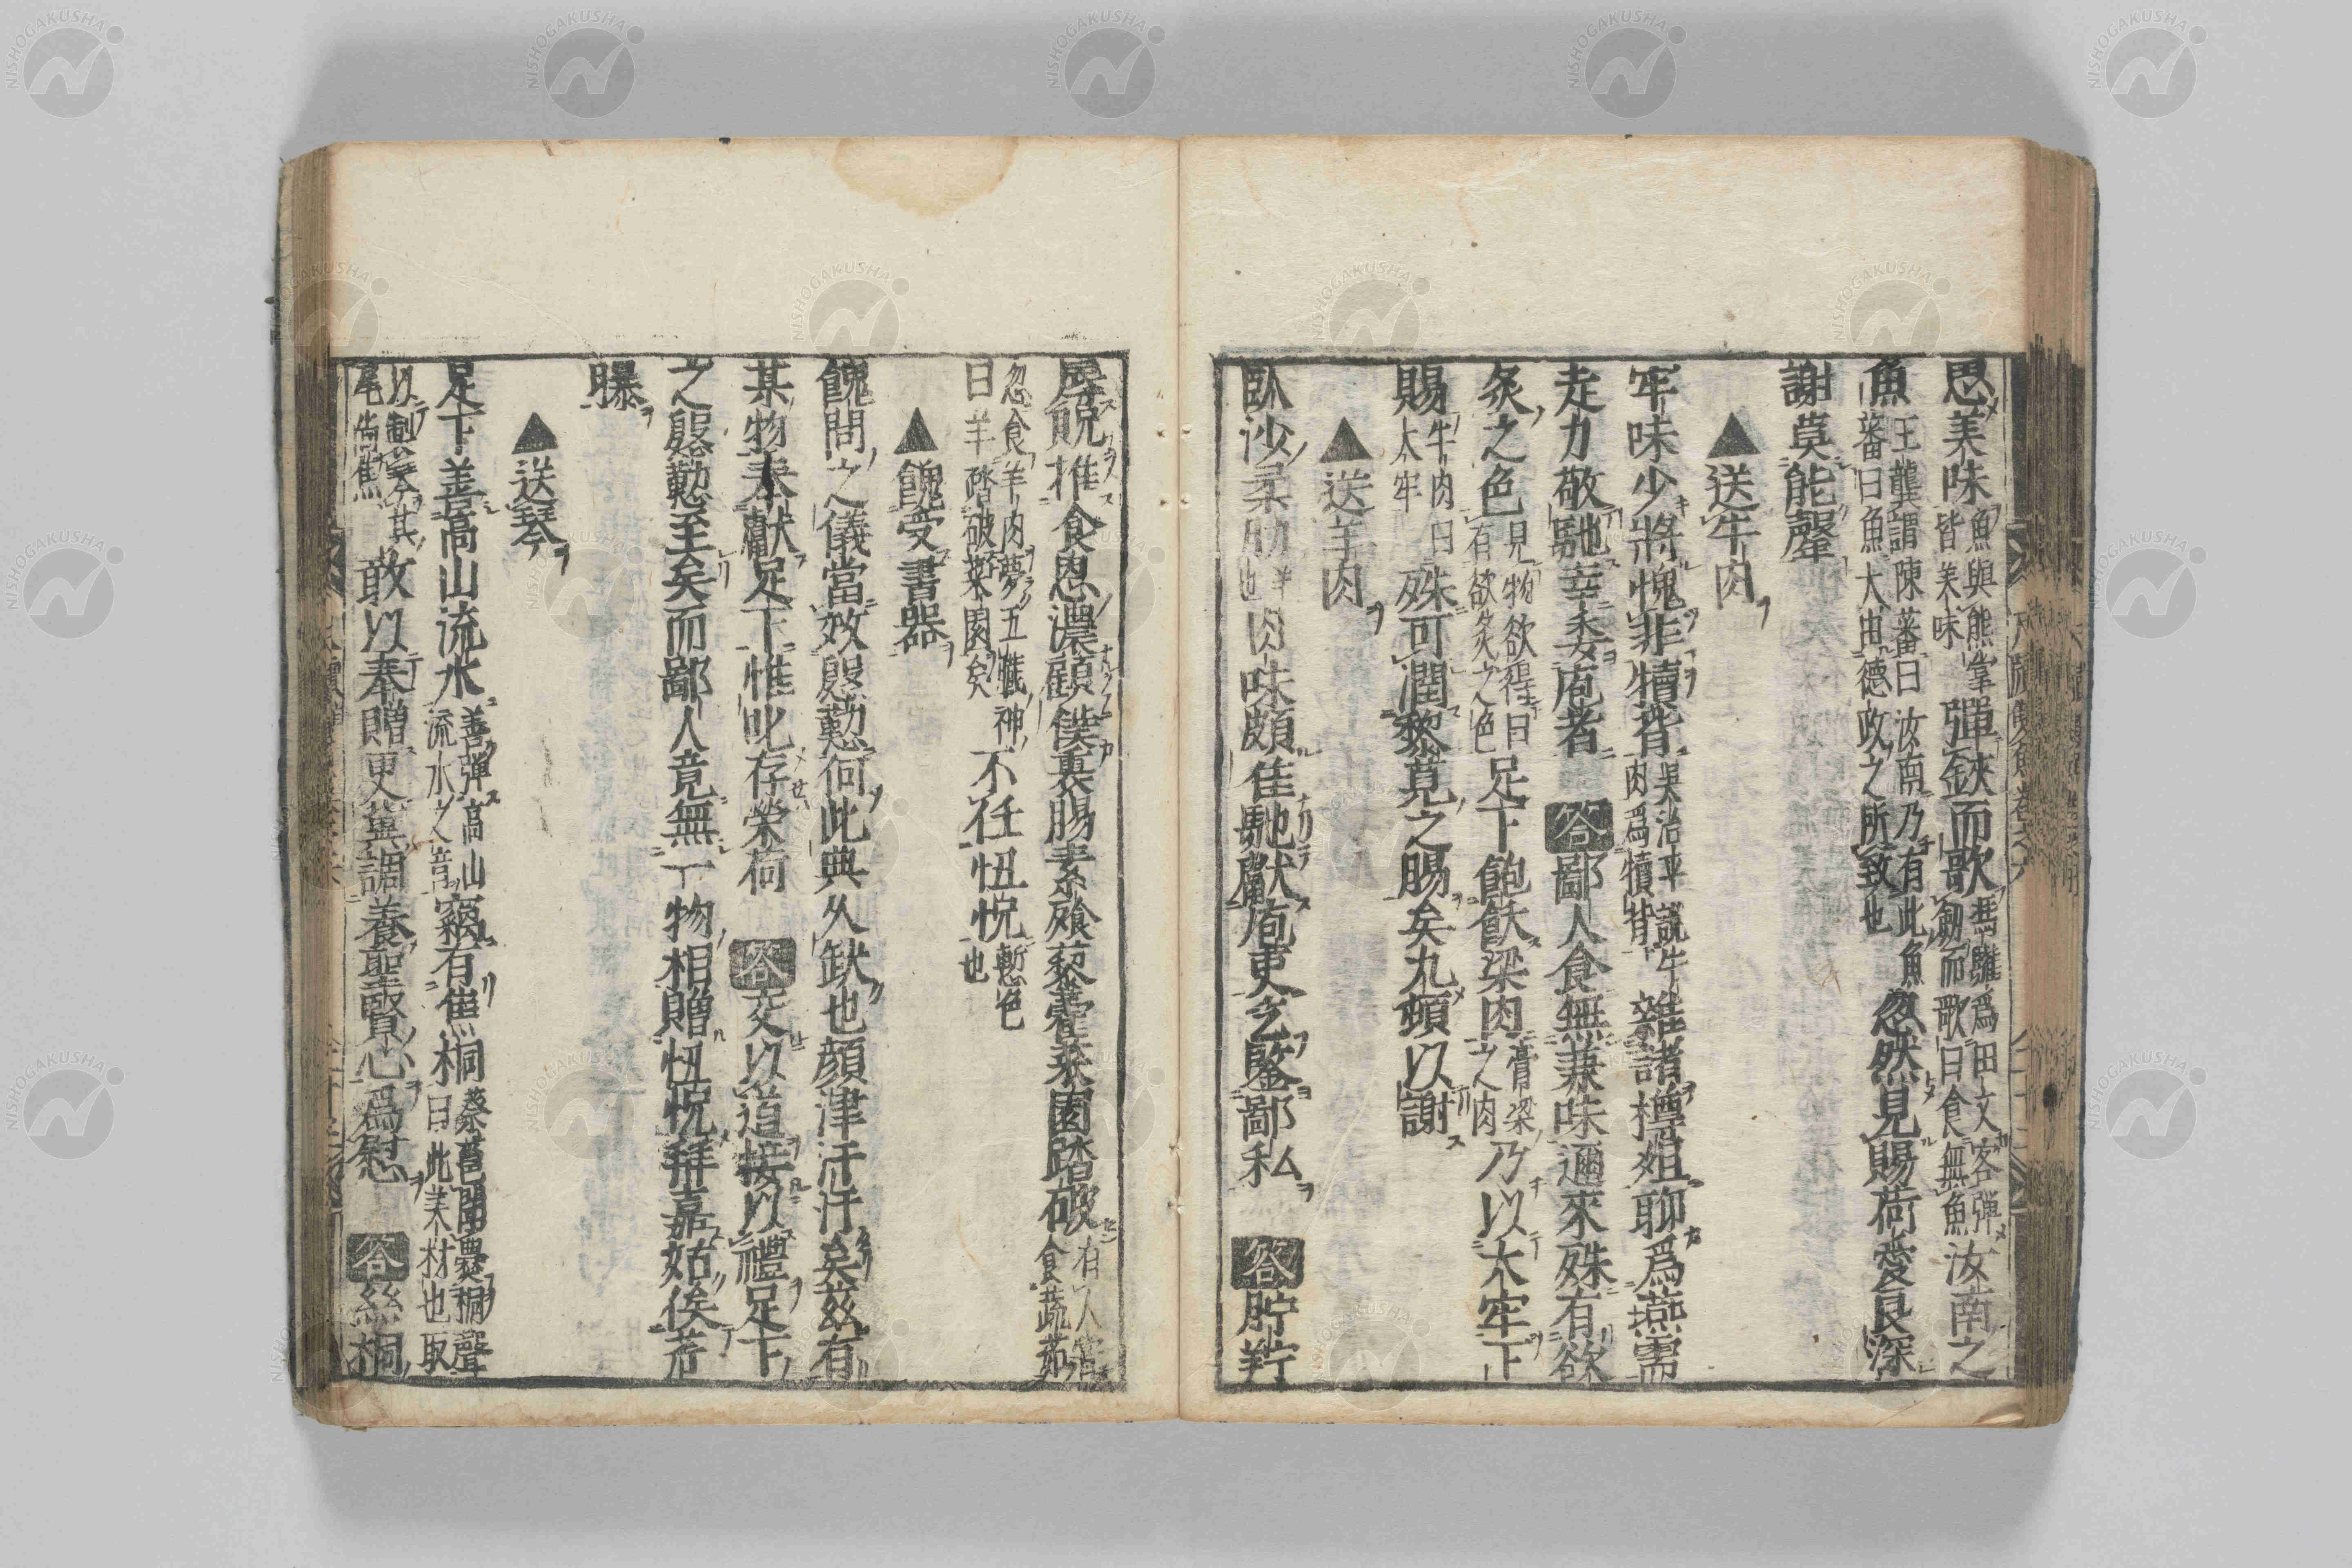 思美味魚與熊掌皆美味彈鋏而歌馮驩爲田文客彈劔而歌曰食無魚汝南之
魚王龔謂陳蕃曰汝南乃有此魚蕃曰魚大由德政之所致也忽然見賜荷愛良深
謝莫能罄
▲送牛肉
牢味少將愧非犢背吳治平説牛肉爲犢背雜諸樽俎聊爲燕需
走力敬馳幸委庖者 答鄙人食無兼味邇來殊有欲
炙之色見物欲得曰有欲炙之色足下飽飫梁肉膏梁之肉乃以太牢下
賜牛肉曰太牢殊可潤藜莧之腸矣九頓以謝
▲送羊肉
臥沙柔肋羊也肉味頗佳馳獻庖吏乞鑒鄙私 答貯羜
辱貺推食恩濃顧僕裏腸素飱藜藿菜園踏破有人常食蔬茹
忽食羊肉夢五臓神曰羊踏破菜園矣不任忸怩慙色也
▲餽受書器
餽問之儀當效慇懃何此典久缺也顔津汗汗矣茲有
某物奉獻足下惟叱存榮荷 答交以道接以禮足下
之慇懃至矣而鄙人竟無一物相贈忸怩拜嘉姑俟芹
曝
▲送琴
足下善高山流水善彈高山流水之音竊有焦桐蔡邕聞爨桐聲曰此美材也取
以製琴其尾尚焦敢以奉贈更冀調養聖賢心爲慰 答絲桐